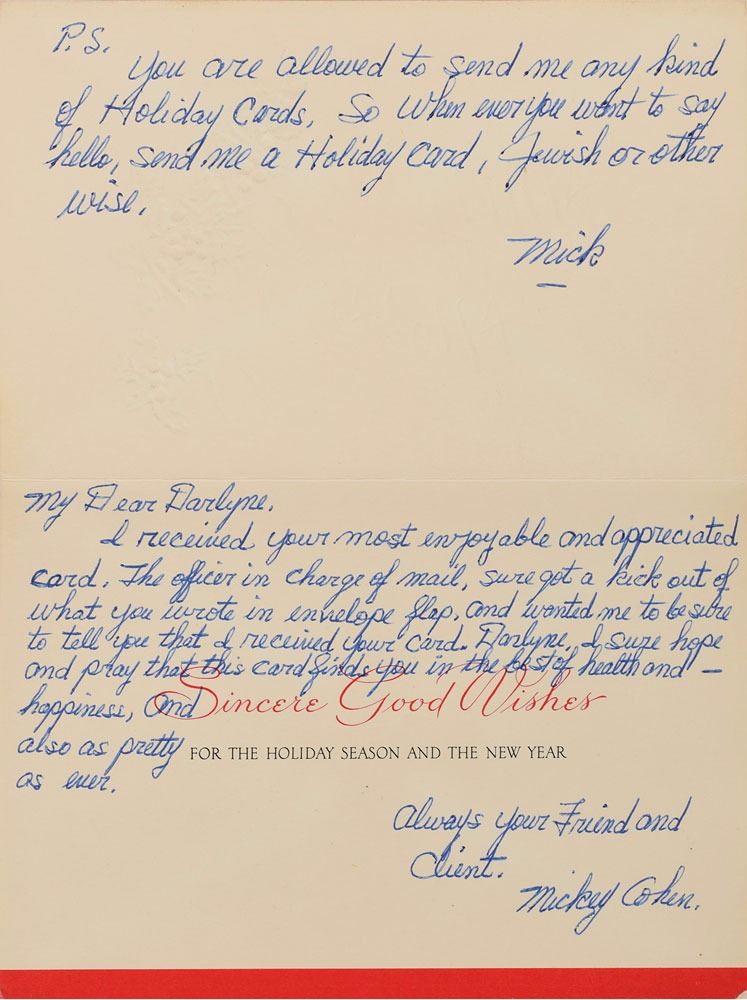 P.S.
You are allowed to send me any kind
of Holiday Cards, So When ever you want to say
hello, send me a Holiday Card, Jewish or other
wise.
Mick
My Dear Darlyne.
I received your most enjoyable and appreciated
card. The officer in charge of mail, sure got a kick out of
what you wrote in envelope flap, and wanted me to be sure
to tell you that I received your card. Darlyne, I sure hope
and pray that this card finds you in the best of health and –
happiness, and
Sincere Good Wishes
also as pretty
FOR THE HOLIDAY SEASON AND THE NEW YEAR
as ever.
Always your Friend and
Client.
Mickey Cohen.